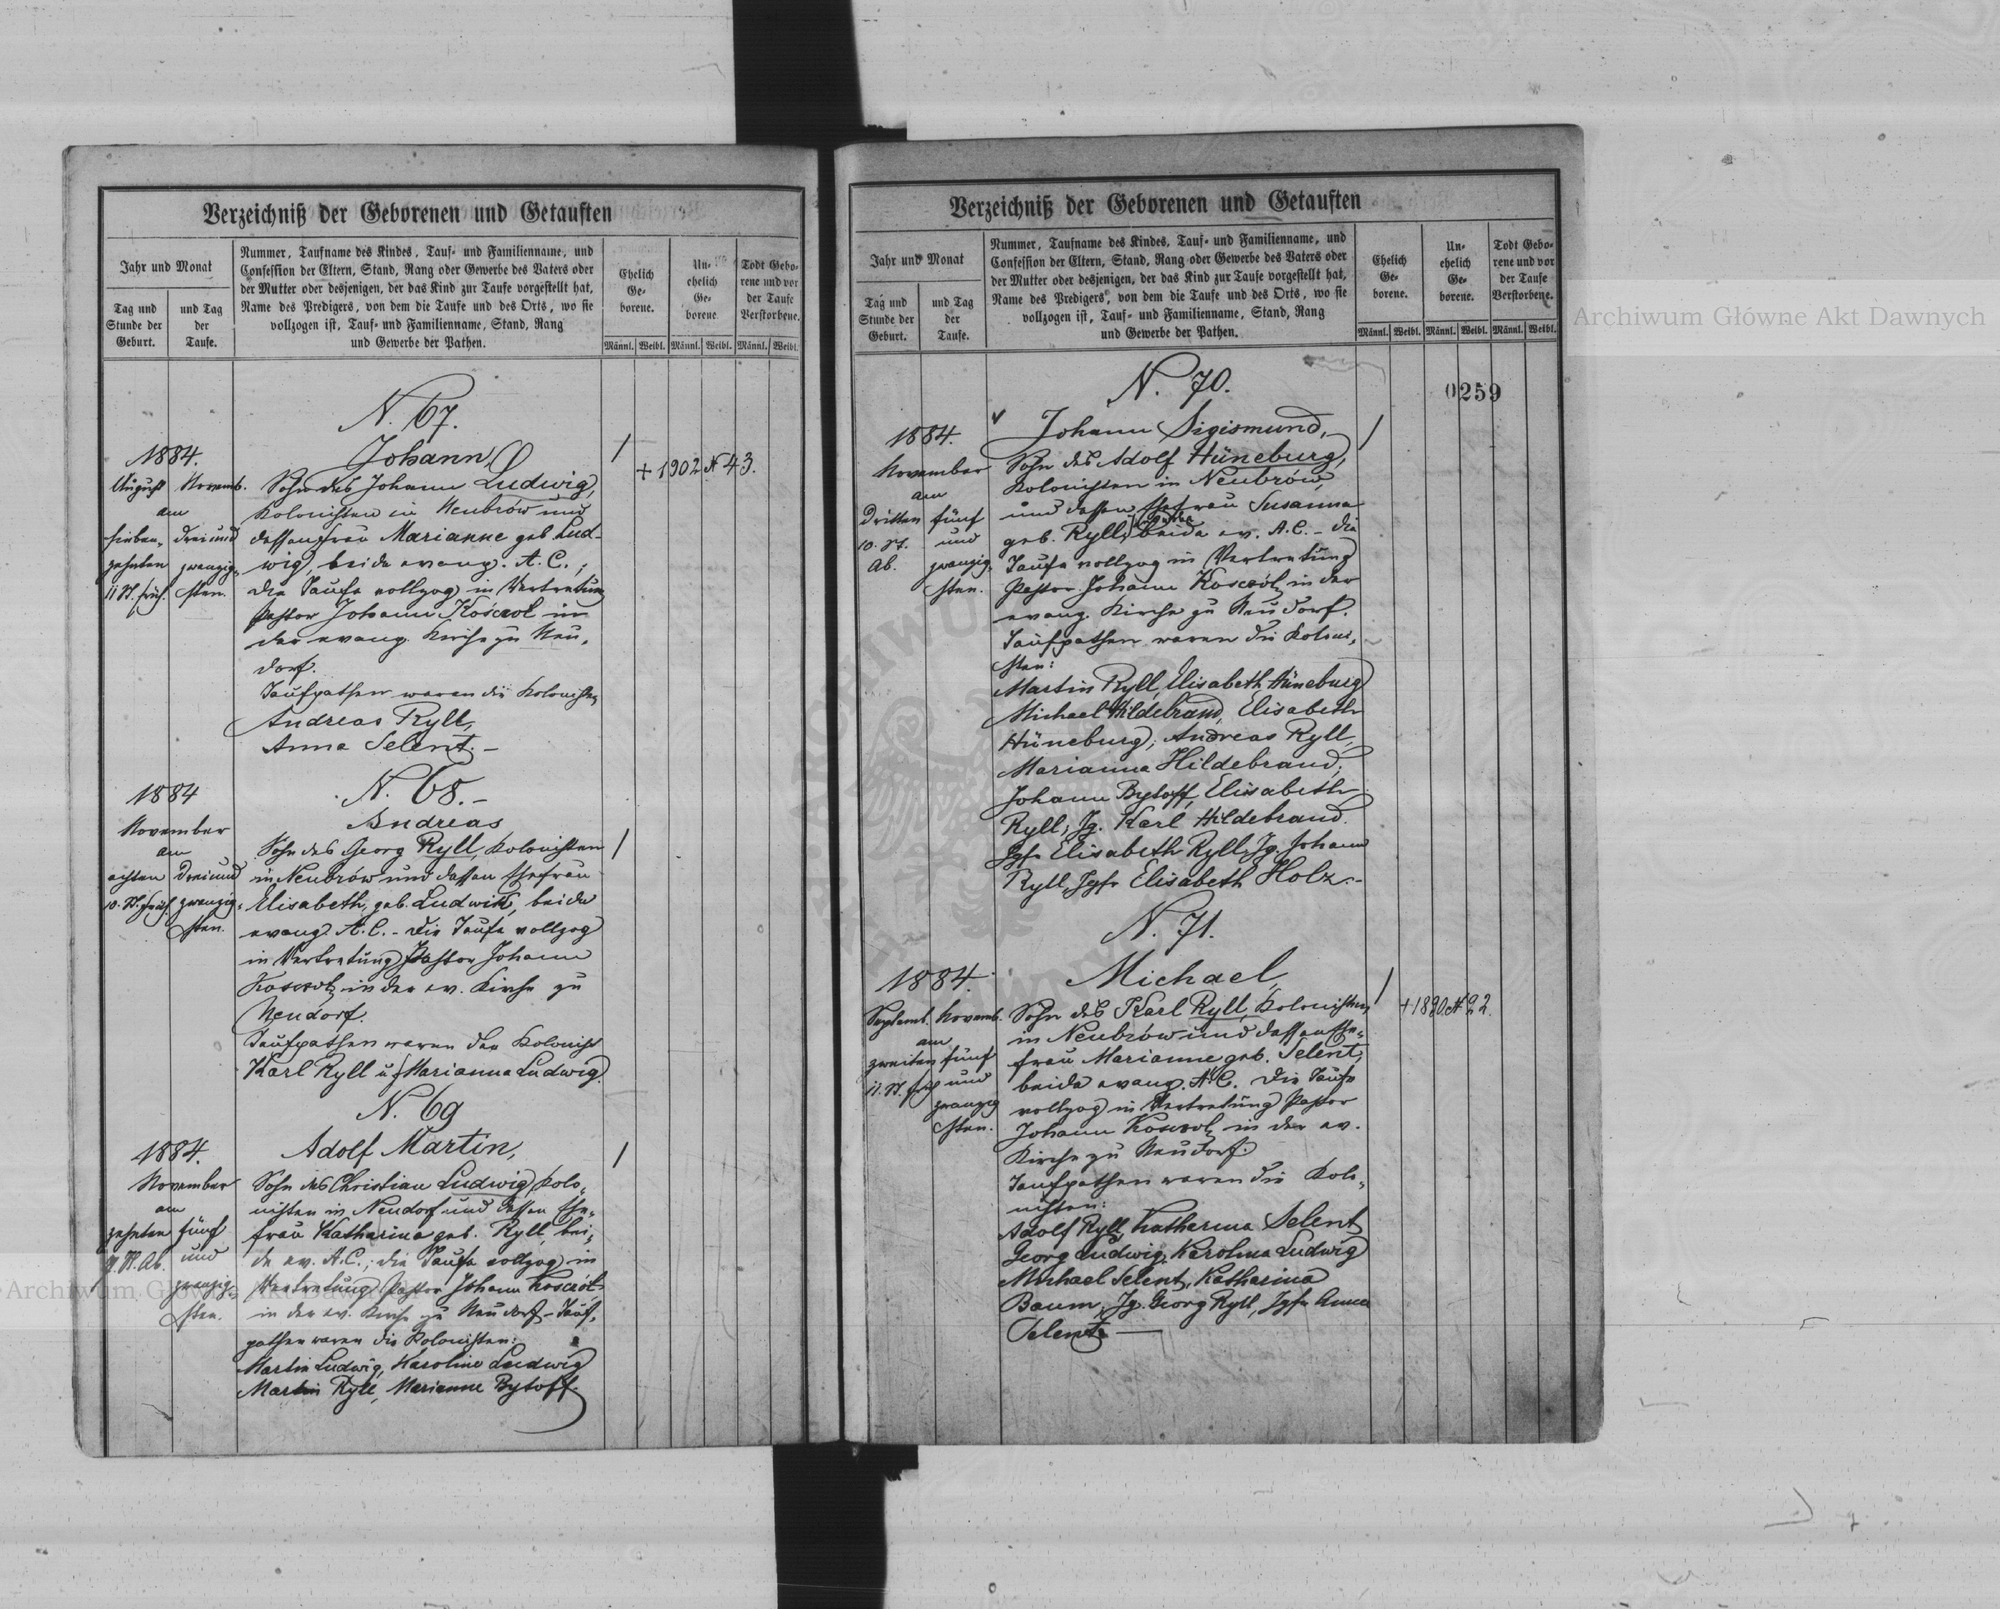 Verzeichniß der Geborenen und Getauften
Jahr und Monat
Tag und
Stunde der
Geburt.
und Tag
der
Taufe.
Nummer, Taufname des Kindes, Tauf- und Familienname, und
Confession der Eltern, Stand, Rang oder Gewerbe des Vaters oder
der Mutter oder desjenigen, der das Kind zur Taufe vorgestellt hat,
Name des Predigers, von dem die Taufe und des Orts, wo sie
vollzogen ist, Tauf- und Familienname, Stand, Rang
und Gewerbe der Pathen.
Ehelich
Ge-
borene.
Un-
ehelich
Ge-
borene
Todt Gebo-
rene und vor
der Taufe
Verstorbene.
Männl. Weibl. Männl. Weibl. Männl. Weibl.
N. 67.
1884.
August Novemb.
am
sieben- drei und
zehnten zwanzig-
11 St. früh. sten.
Johann,
Sohn des Johann Ludwig,
Kolonisten in Neubrów und
dessen Frau Marianne geb. Lud-
wig, beide evang. A. C.;
die Taufe vollzog in Vertretung
Pastor Johann Koscrol in
der evang. Kirche zu Neu-
dorf.
Taufpathen waren die Kolonisten
Andreas Ryll,
Anna Selent. –
/
+ 1902 N 43.
N. 68. –
1884
November
am
achten drei und
10. St. früh. zwanzig-
sten.
Andreas
Sohn des Georg Ryll, Kolonisten
in Neubrów und dessen Ehefrau
Elisabeth, geb. Ludwig, beide
evang. A. C. – Die Taufe vollzog
in Vertretung Pastor Johann
Koscrol, in der ev. Kirche zu
Neudorf.
Taufpathen waren der Kolonist
Karl Ryll u. Marianna Ludwig.
/
N. 69
1884.
November
am
zehnten fünf
St. Ab. und
zwanzig-
sten.
Adolf Martin,
Sohn des Christian Ludwig, Kolo-
nisten in Neudorf und dessen Ehe-
frau Katharina geb. Ryll, bei-
de ev. A. C.; die Taufe vollzog in
Vertretung Pastor Johann Koscrol
in der ev. Kirche zu Neudorf – Tauf-
pathen waren die Kolonisten:
Martin Ludwig, Karoline Ludwig
Martin Ryll, Marianne Bytoff.
/
Verzeichniß der Geborenen und Getauften
Jahr und Monat
Tag und
Stunde der
Geburt.
und Tag
der
Taufe.
Nummer, Taufname des Kindes, Tauf- und Familienname, und
Confession der Eltern, Stand, Rang oder Gewerbe des Vaters oder
der Mutter oder desjenigen, der das Kind zur Taufe vorgestellt hat,
Name des Predigers, von dem die Taufe und des Orts, wo sie
vollzogen ist, Tauf- und Familienname, Stand, Rang
und Gewerbe der Pathen.
Ehelich
Ge-
borene.
Un-
ehelich
Ge-
borene.
Todt Gebo-
rene und vor
der Taufe
Verstorbene.
Männl. Weibl. Männl. Weibl. Männl. Weibl.
0259
N. 70.
1884.
November
am
dritten fünf
10. St. und
Ab. zwanzig-
sten.
Johann Sigismund,
Sohn des Adolf Hüneburg,
Kolonisten in Neubrów,
und dessen Ehefrau Susanna
geb. Ryll, beide ev. A. C. – Die
Taufe vollzog in Vertretung
Pastor Johann Koscrol, in der
evang. Kirche zu Neudorf.
Taufpathen waren die Koloni-
sten:
Martin Ryll, Elisabeth Hüneburg
Michael Hildebrand, Elisabeth
Hüneburg; Andreas Ryll,
Marianna Hildebrand;
Johann Bytoff, Elisabeth
Ryll; Jg. Karl Hildebrand.
Jgfr Elisabeth Ryll, Jg. Johann
Ryll, Jgfr Elisabeth Holz. –
/
N. 71.
1884.
Septemb. Novemb.
am
zweiten fünf
11. St. früh und
zwanzig
sten.
Michael,
Sohn des Karl Ryll, Kolonisten,
in Neubrów und dessen Ehe-
frau Marianne geb. Selent,
beide evang. A. C. Die Taufe
vollzog in Vertretung Pastor
Johann Koscrol, in der ev.
Kirche zu Neudorf.
Taufpathen waren die Kolo-
nisten:
Adolf Ryll, Katharina Selent
Georg Ludwig, Karolina Ludwig
Michael Selent, Katharina
Baum; Jg. Georg Ryll, Jgfr Anna
Selent. —
/
+ 1890 N 92.
Archiwum Główne Akt Dawnych
Archiwum Główne Akt Dawnych